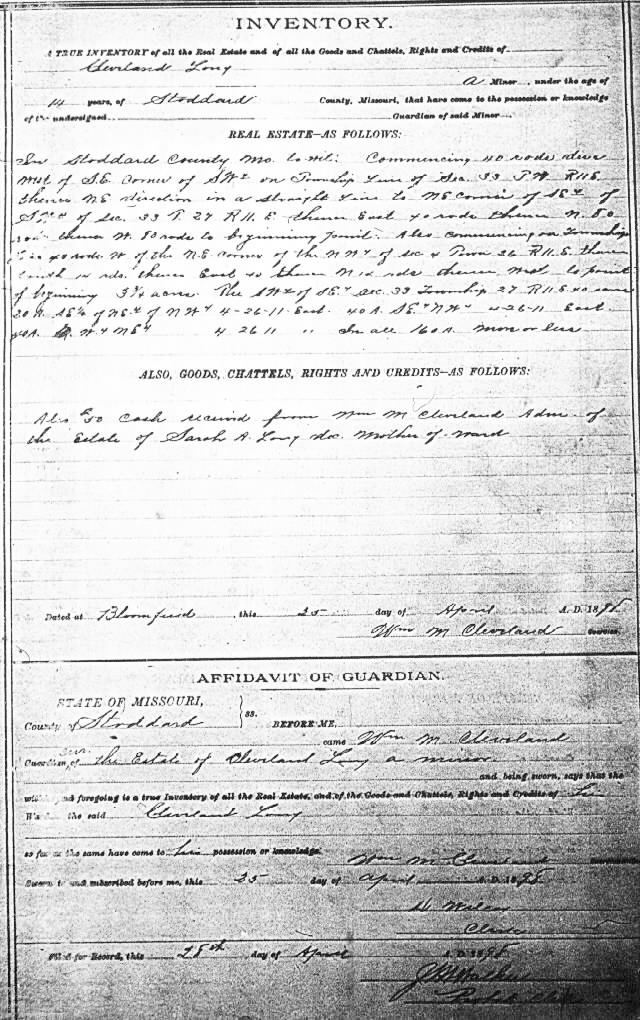 INVENTORY.
A TRUE INVENTORY of all the Real Estate and of all the Goods and Chattels, Rights and Credits of
Cleveland Long
A Minor, under the age of
14 years, of Stoddard County, Missouri, that have come to the possession or knowledge
of the undersigned Guardian of said Minor
REAL ESTATE—AS FOLLOWS:
In Stoddard County Mo. to wit: Commencing 40 rods due
West of S.E. Corner of on Township Line of Sec. 33 R 11 E
thence N.E. direction in a straight Line to N.E Corner of of
of Sec. 33 T. 27 R 11. E thence East 40 rods thence N. 80
thence W. 80 rods to beginning point. Also commencing on Township
40 rods W of the N.E. corner of the of sec 4 Town 26 R 11 E. thence
rds. thence East 40 thence N rds thence West to point
of beginning acres. The of sec. 33 Township 27 R 11. E 40 acres
20 A. of of 4-26-11 East. 40 A. 4-26-11 East.
40 A. 4 26 11 " In all 160 A. more or less
ALSO, GOODS, CHATTELS, RIGHTS AND CREDITS—AS FOLLOWS:
Also $50 Cash received from Wm M Cleveland Adm. of
the Estate of Sarah A. Long dec. Mother of Ward
Dated at Bloomfield, this 25 day of April A. D. 1898
Wm M Cleveland Guardian.
AFFIDAVIT OF GUARDIAN.
STATE OF MISSOURI,
County of Stoddard } ss. BEFORE ME,
came Wm M. Cleveland
Guardian of the Estate of Cleveland Long a minor.
and being sworn, says that the
within and foregoing is a true Inventory of all the Real Estate, and of the Goods and Chattels, Rights and Credits of his
Ward the said Cleveland Long
so far as the same have come to his possession or knowledge.
Wm M Cleveland Guardian
Sworn to and subscribed before me, this 25 day of April A. D. 1898
Clerk
Filed for Record, this 25th day of April A. D. 1898